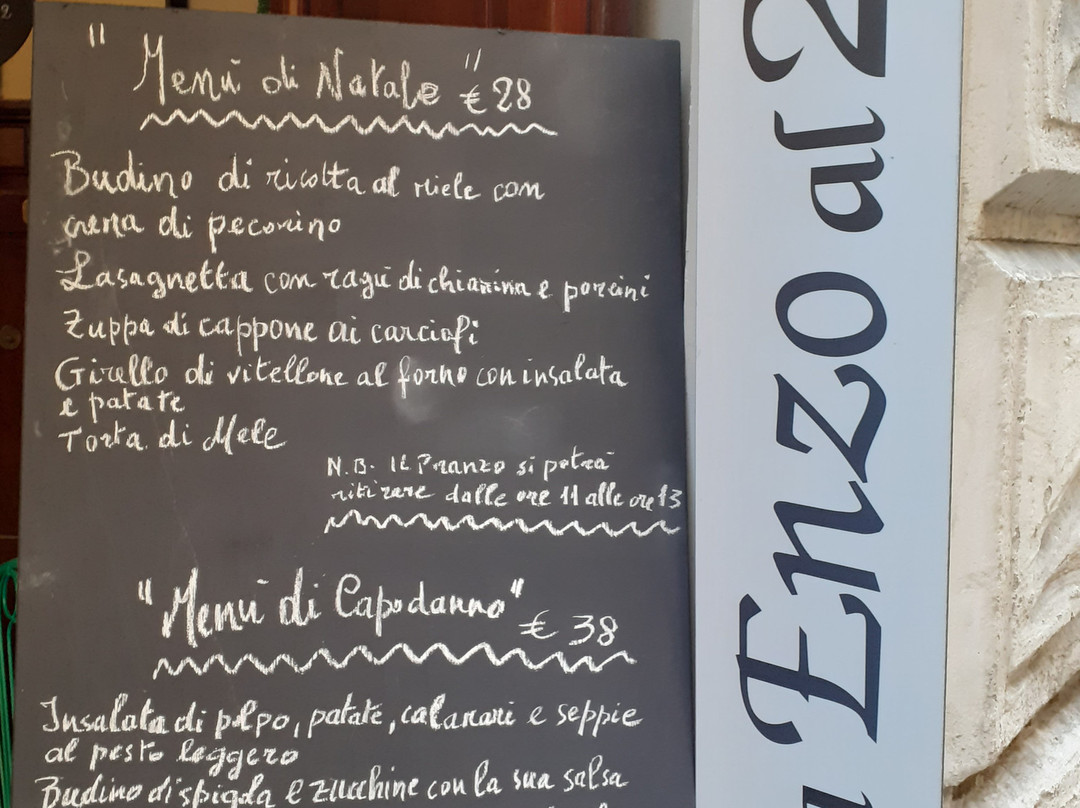 "Menù di Natale" € 28
Budino di ricotta al miele con
crema di pecorino
Lasagnetta con ragù di chianina e porcini
Zuppa di cappone ai carciofi
Girello di vitellone al forno con insalata
e patate
Torta di Mele
N.B. IL Pranzo si potrà
ritirare dalle ore 11 alle ore 13
"Menù di Capodanno" € 38
Insalata di polpo, patate, calamari e seppie
al pesto leggero
Budino di spigola e zucchine con la sua salsa
Enzo al 2
2